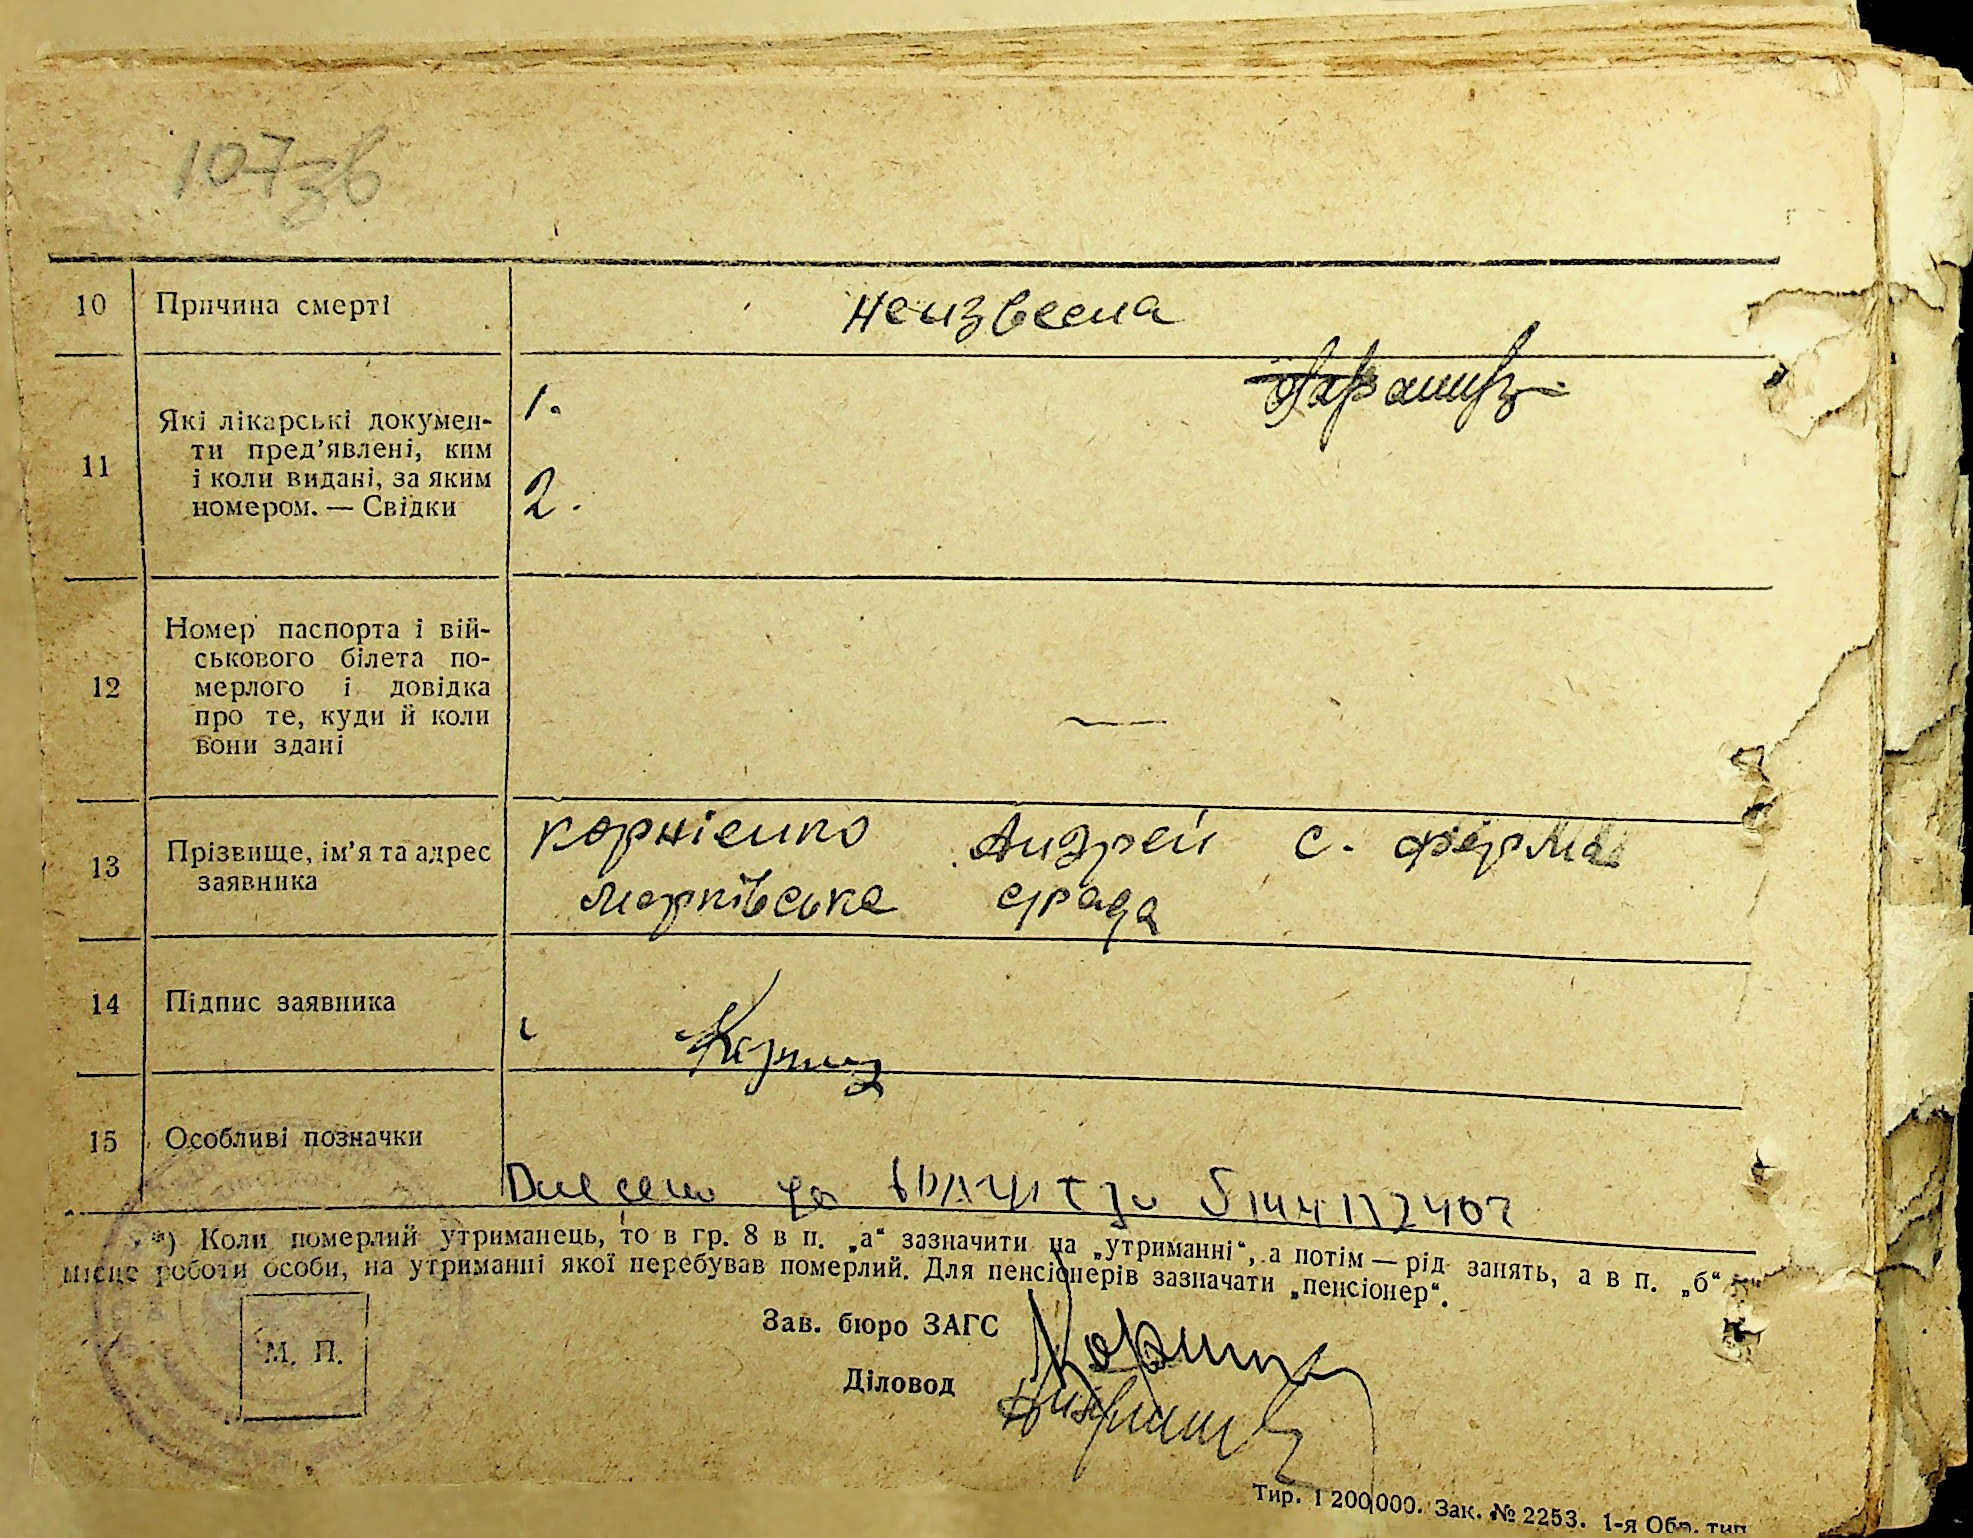 107зв
10 Причина смерті неизвесна
11 Які лікарські докумен-
ти пред’явлені, ким
і коли видані, за яким
номером. — Свідки
1.
2.
12 Номер паспорта і вій-
ськового білета по-
мерлого і довідка
про те, куди й коли
вони здані —
13 Прізвище, ім’я та адрес
заявника
Корнієнко Андрей с. ферма
14 Підпис заявника
15 Особливі позначки
*) Коли померлий утриманець, то в гр. 8 в п. „а“ зазначити на „утриманні“, а потім — рід занять, а в п. „б“
місце роботи особи, на утриманні якої перебував померлий. Для пенсіонерів зазначати „пенсіонер“.
Зав. бюро ЗАГС
М. П.
Діловод
Тир. 1 200 000. Зак. № 2253. 1-я Обр. тип